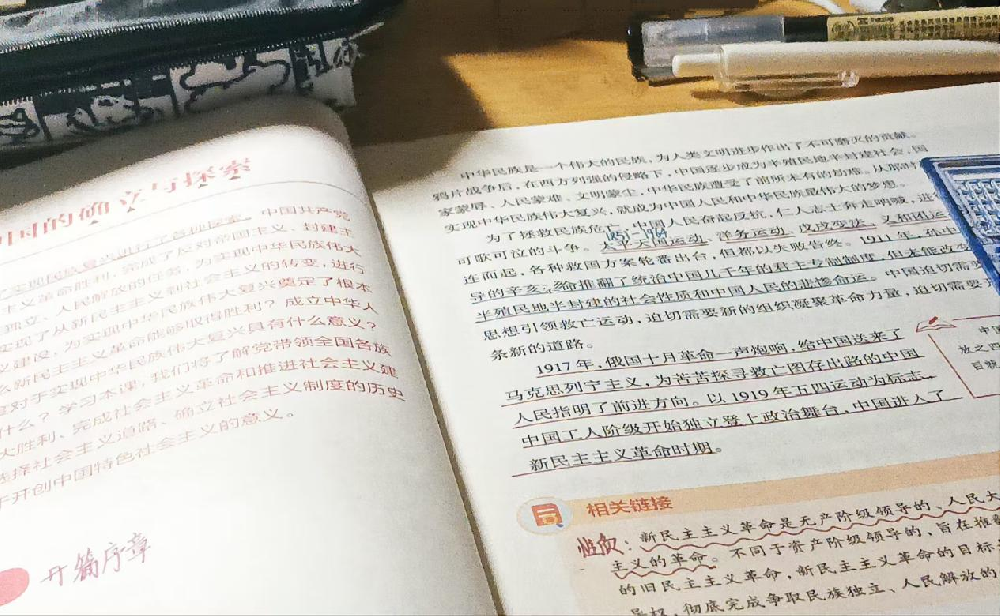 国的确立与探索
中国共产党
革命胜利，完成了反对帝国主义、封建主
独立、人民解放的任务，为实现中华民族伟大
实现了从新民主主义到社会主义的转变，进行
义建设，为实现中华民族伟大复兴奠定了根本
么新民主主义革命能够取得胜利？成立中华人
对于实现中华民族伟大复兴具有什么意义？
什么？学习本课，我们将了解党带领全国各族
大胜利，完成社会主义革命和推进社会主义建
选择社会主义道路、确立社会主义制度的历史
于开创中国特色社会主义的意义。
开篇序章
中华民族是一个伟大的民族，为人类文明进步作出了不可磨灭的贡献。
鸦片战争后，在西方列强的侵略下，中国逐步成为半殖民地半封建社会，国
家蒙辱、人民蒙难、文明蒙尘，中华民族遭受了前所未有的劫难。从那时
实现中华民族伟大复兴，就成为中国人民和中华民族最伟大的梦想。
为了拯救民族危亡，中国人民奋起反抗，仁人志士奔走呐喊，进
可歌可泣的斗争。太平天国运动、洋务运动、戊戌变法、义和团运
连而起，各种救国方案轮番出台，但都以失败告终。1911年，孙中
导的辛亥革命推翻了统治中国几千年的君主专制制度，但未能改变
半殖民地半封建的社会性质和中国人民的悲惨命运。中国迫切需
思想引领救亡运动，迫切需要新的组织凝聚革命力量，迫切需要
条新的道路。
1917年，俄国十月革命一声炮响，给中国送来了
马克思列宁主义，为苦苦探寻救亡图存出路的中国
人民指明了前进方向。以1919年五四运动为标志，
中国工人阶级开始独立登上政治舞台，中国进入了
新民主主义革命时期。
中国
相关链接
新民主主义革命是无产阶级领导的、人民大
主义的革命。不同于资产阶级领导的，旨在推
的旧民主主义革命，新民主主义革命的目标是
政权，彻底完成争取民族独立、人民解放的